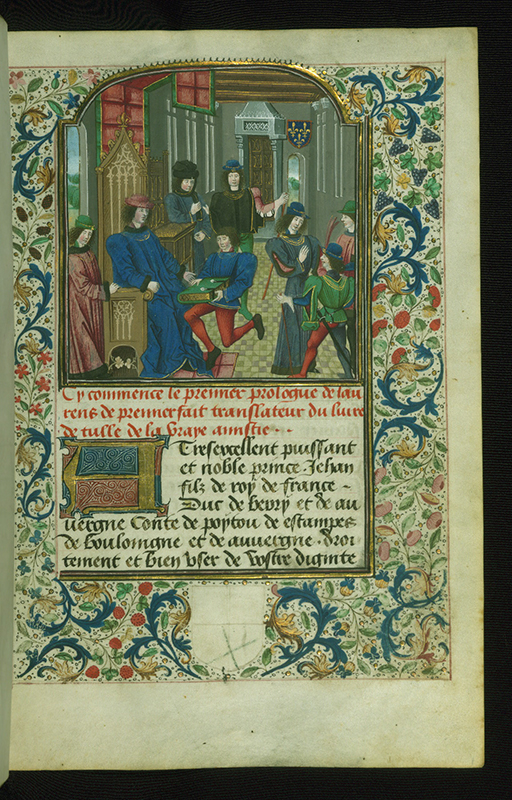 Cy commence le premier prologue de lau
rens de premierfait translateur du livre
de tulle de la vraye amistie
A Tresexcellent puissant
et noble prince Jehan
filz de roy de france
Duc de berry et de au
uergne Conte de poytou de estampes
de boulomgne et de auuergne droi
tement et bien vser de vostre dignite